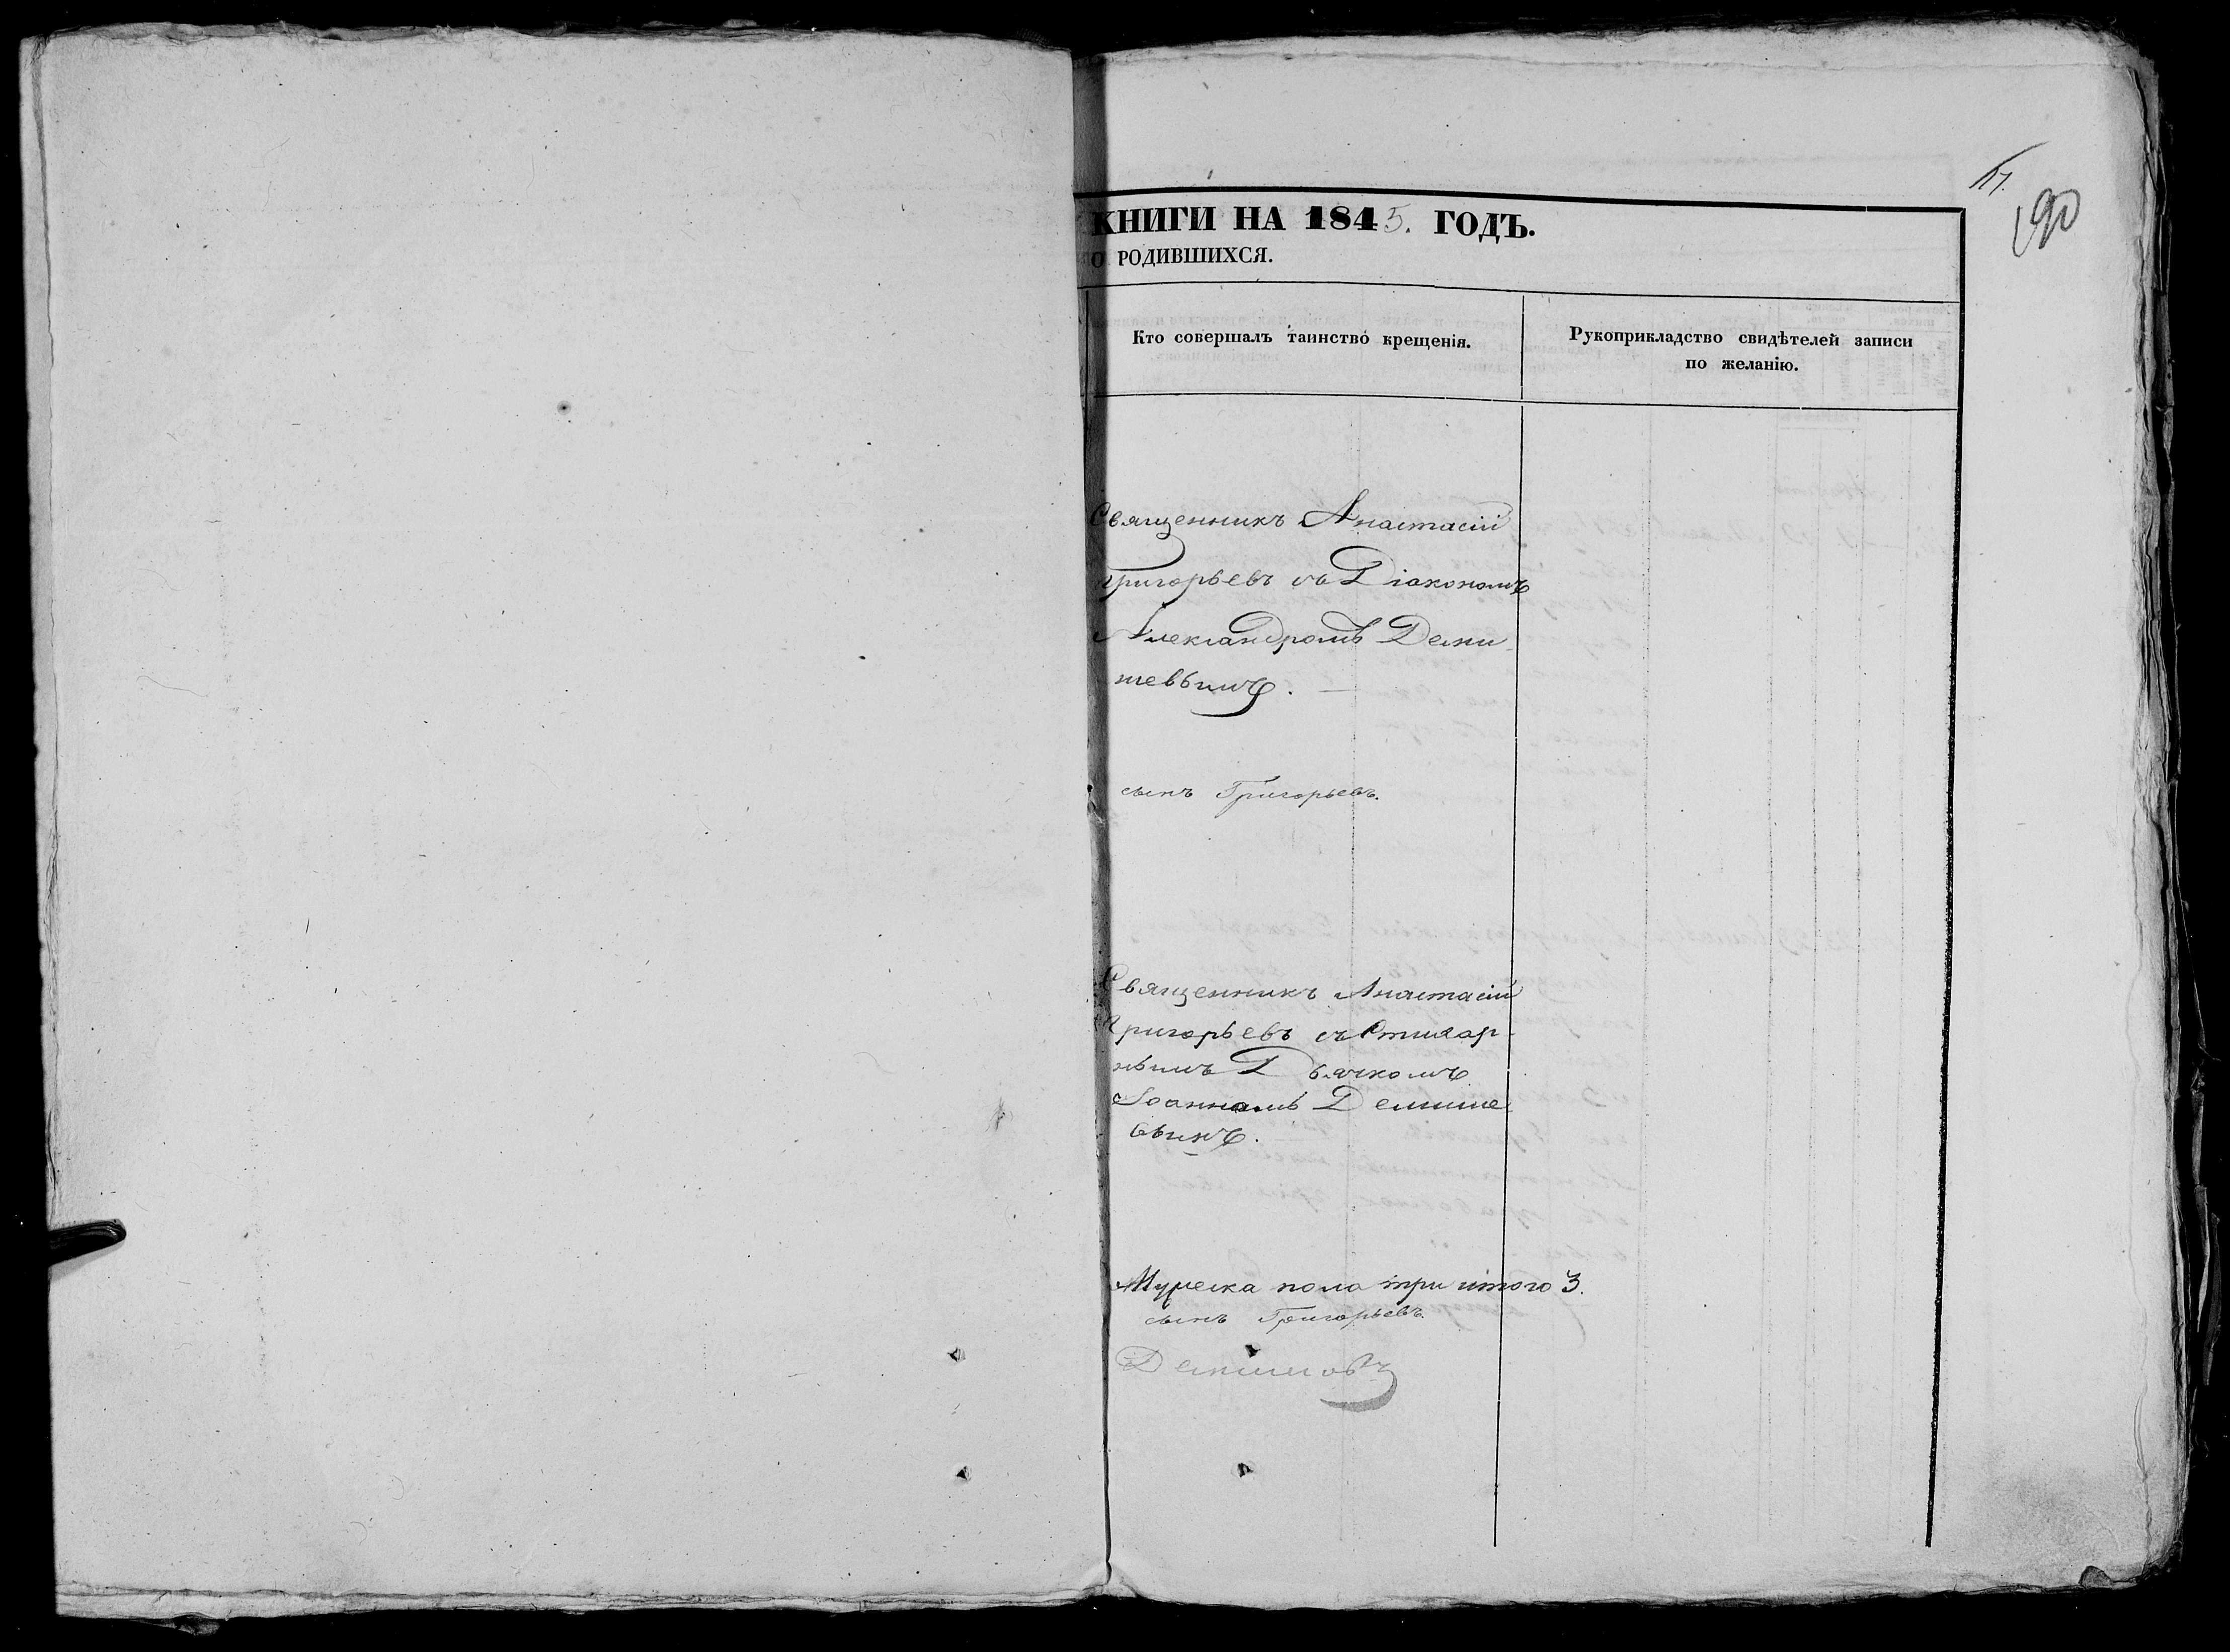 КНИГИ НА 1845. ГОДЪ.
О РОДИВШИХСЯ.
190
Кто совершалъ таинство крещенія.
Рукоприкладство свидѣтелей записи
по желанію.
Священникъ Анастасій
Григорьевъ съ Діакономъ
Александромъ Деми
шевымъ.
сынъ Григорьевъ.
Священникъ Анастасій
Григорьевъ съ Стихар-
нымъ Дьячкомъ
Іоанномъ Демише
вымъ.
Мужеска пола три итого 3.
сынъ Григорьевъ.